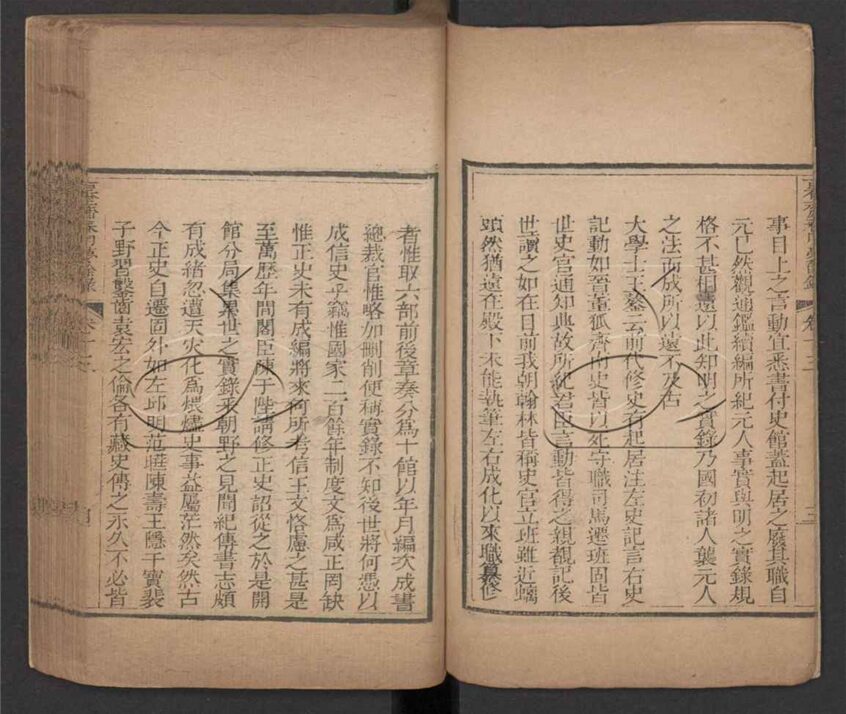 事目上之言動宜悉書付史館蓋起居之廢其職自
元已然觀通鑑續編所紀元人事實與明之實錄規
格不甚相遠以此知明之實錄乃國初諸人襲元人
之法而成所以遠不及古
大學士王鏊云前代修史有起居注左史記言右史
記動如晉董狐齊南史皆以死守職司馬遷班固皆
世史官通知典故所紀君臣言動皆得之親覩記後
世讀之如在目前我朝翰林皆稱史官立班雖近螭
頭然猶遠在殿下未能執筆左右成化以來職纂修
者惟取六部前後章奏分為十館以年月編次成書
總裁官惟略加刪削便稱實錄不知後世將何憑以
成信史乎竊惟國家二百餘年制度文為咸正罔缺
惟正史未有成編將來何所考信王文恪慮之甚是
至萬歷年間閣臣陳于陛請修正史詔從之於是開
館分局集累世之實錄采朝野之見聞紀傳書志頗
有成緒忽遭天火化為煨燼史事益屬茫然矣然古
今正史自遷固外如左邱明范曄陳壽王隱干寶裴
子野習鑿齒袁宏之倫各有藏史傳之永久不必皆
春明夢餘錄
卷十三